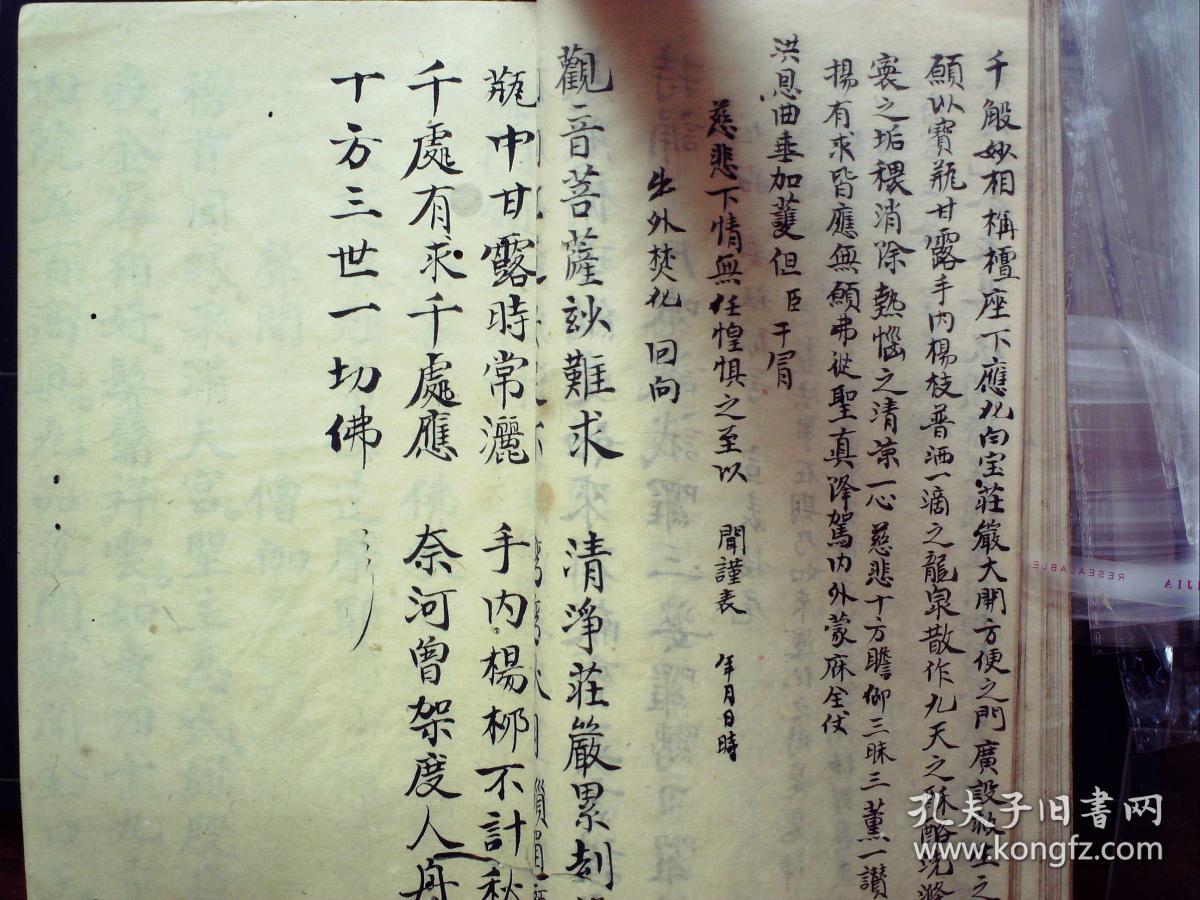 千般妙相稱檀座下應化向宝莊嚴大開方便之門廣設救生之
願以寶瓶甘露手内楊枝普洒一滴之龍泉散作九天之酥酪洗滌
寰之垢穢消除熱惱之清凉一心慈悲十方瞻仰三昧三薰一讚
揚有求皆應無願弗從聖真降駕内外蒙庥全仗
洪恩曲垂加護但臣干冐
慈悲下情無任惶惧之至以 聞謹表 年月日時
出外焚化回向
觀音菩薩玅難求 清淨莊嚴累刼
瓶中甘露時常灑 手内楊柳不計秋
千處有求千處應 奈河曾架度人舟
十方三世一切佛
孔夫子旧書网
www.kongfz.com
RESEALABLE
JIA